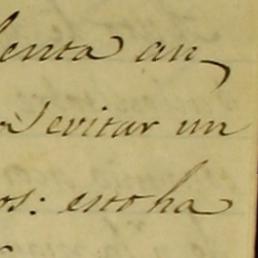 lenta an-
a evitar un
os: esto ha